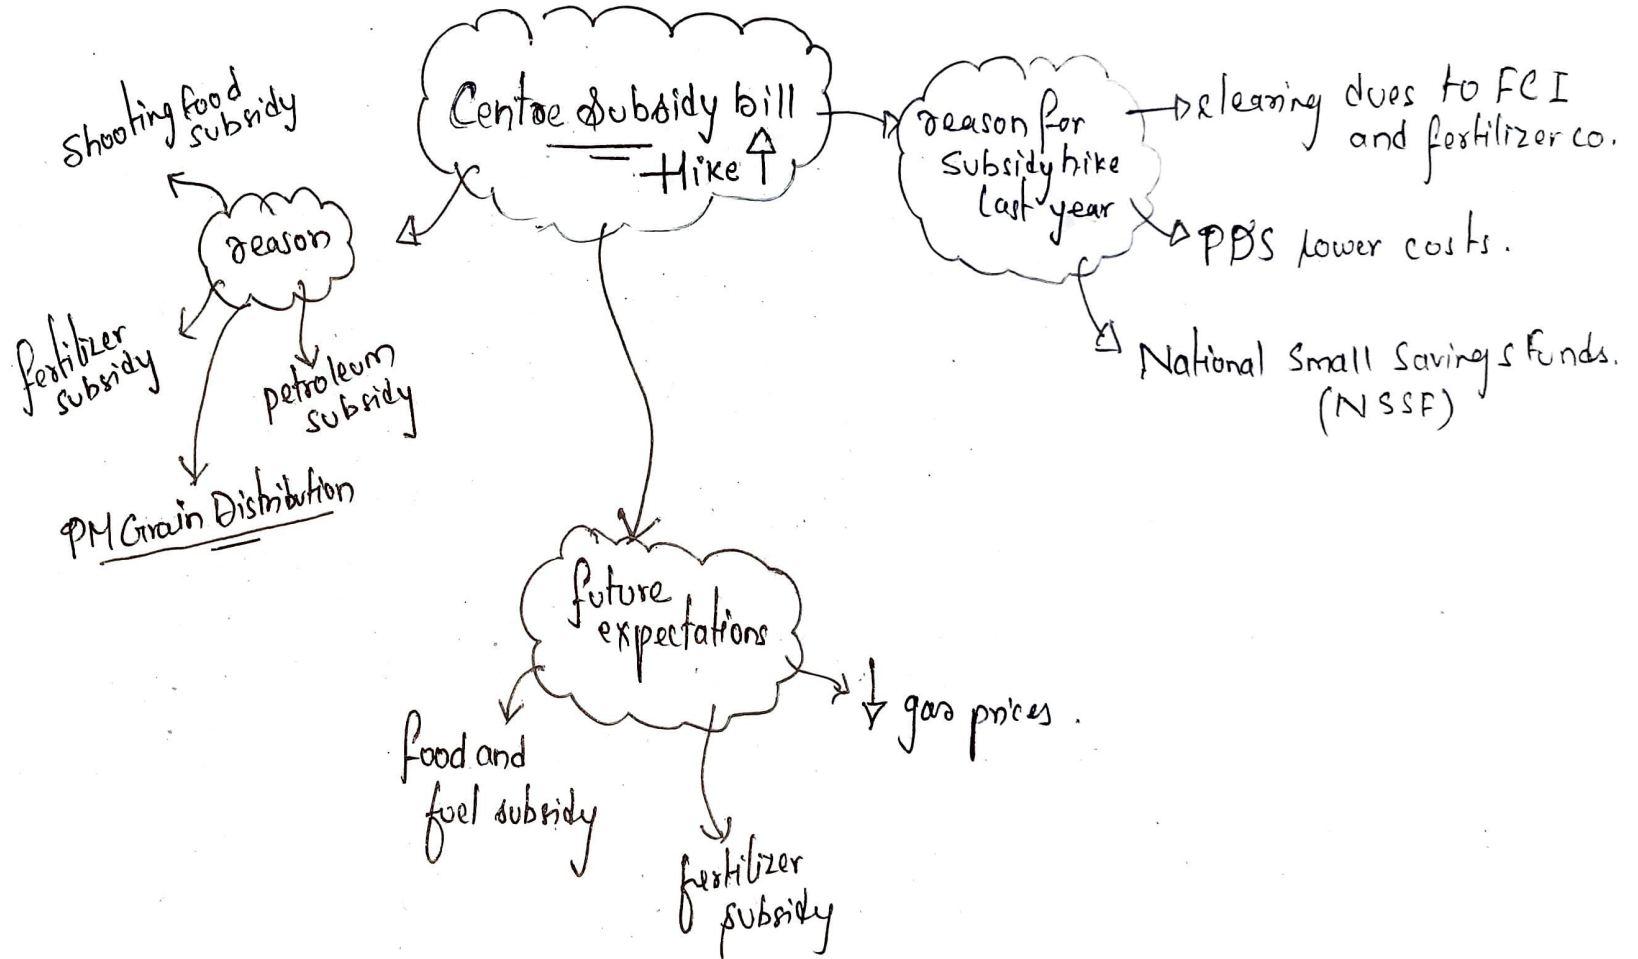 Centre Subsidy bill
Hike ↑
reason
shooting food
subsidy
fertilizer
subsidy
petroleum
subsidy
PM Grain Distribution
reason for
subsidy hike
last year
clearing dues to FCI
and fertilizer co.
PDS lower costs.
National Small Savings Funds.
(NSSF)
future
expectations
food and
fuel subsidy
fertilizer
subsidy
↓ gas prices.